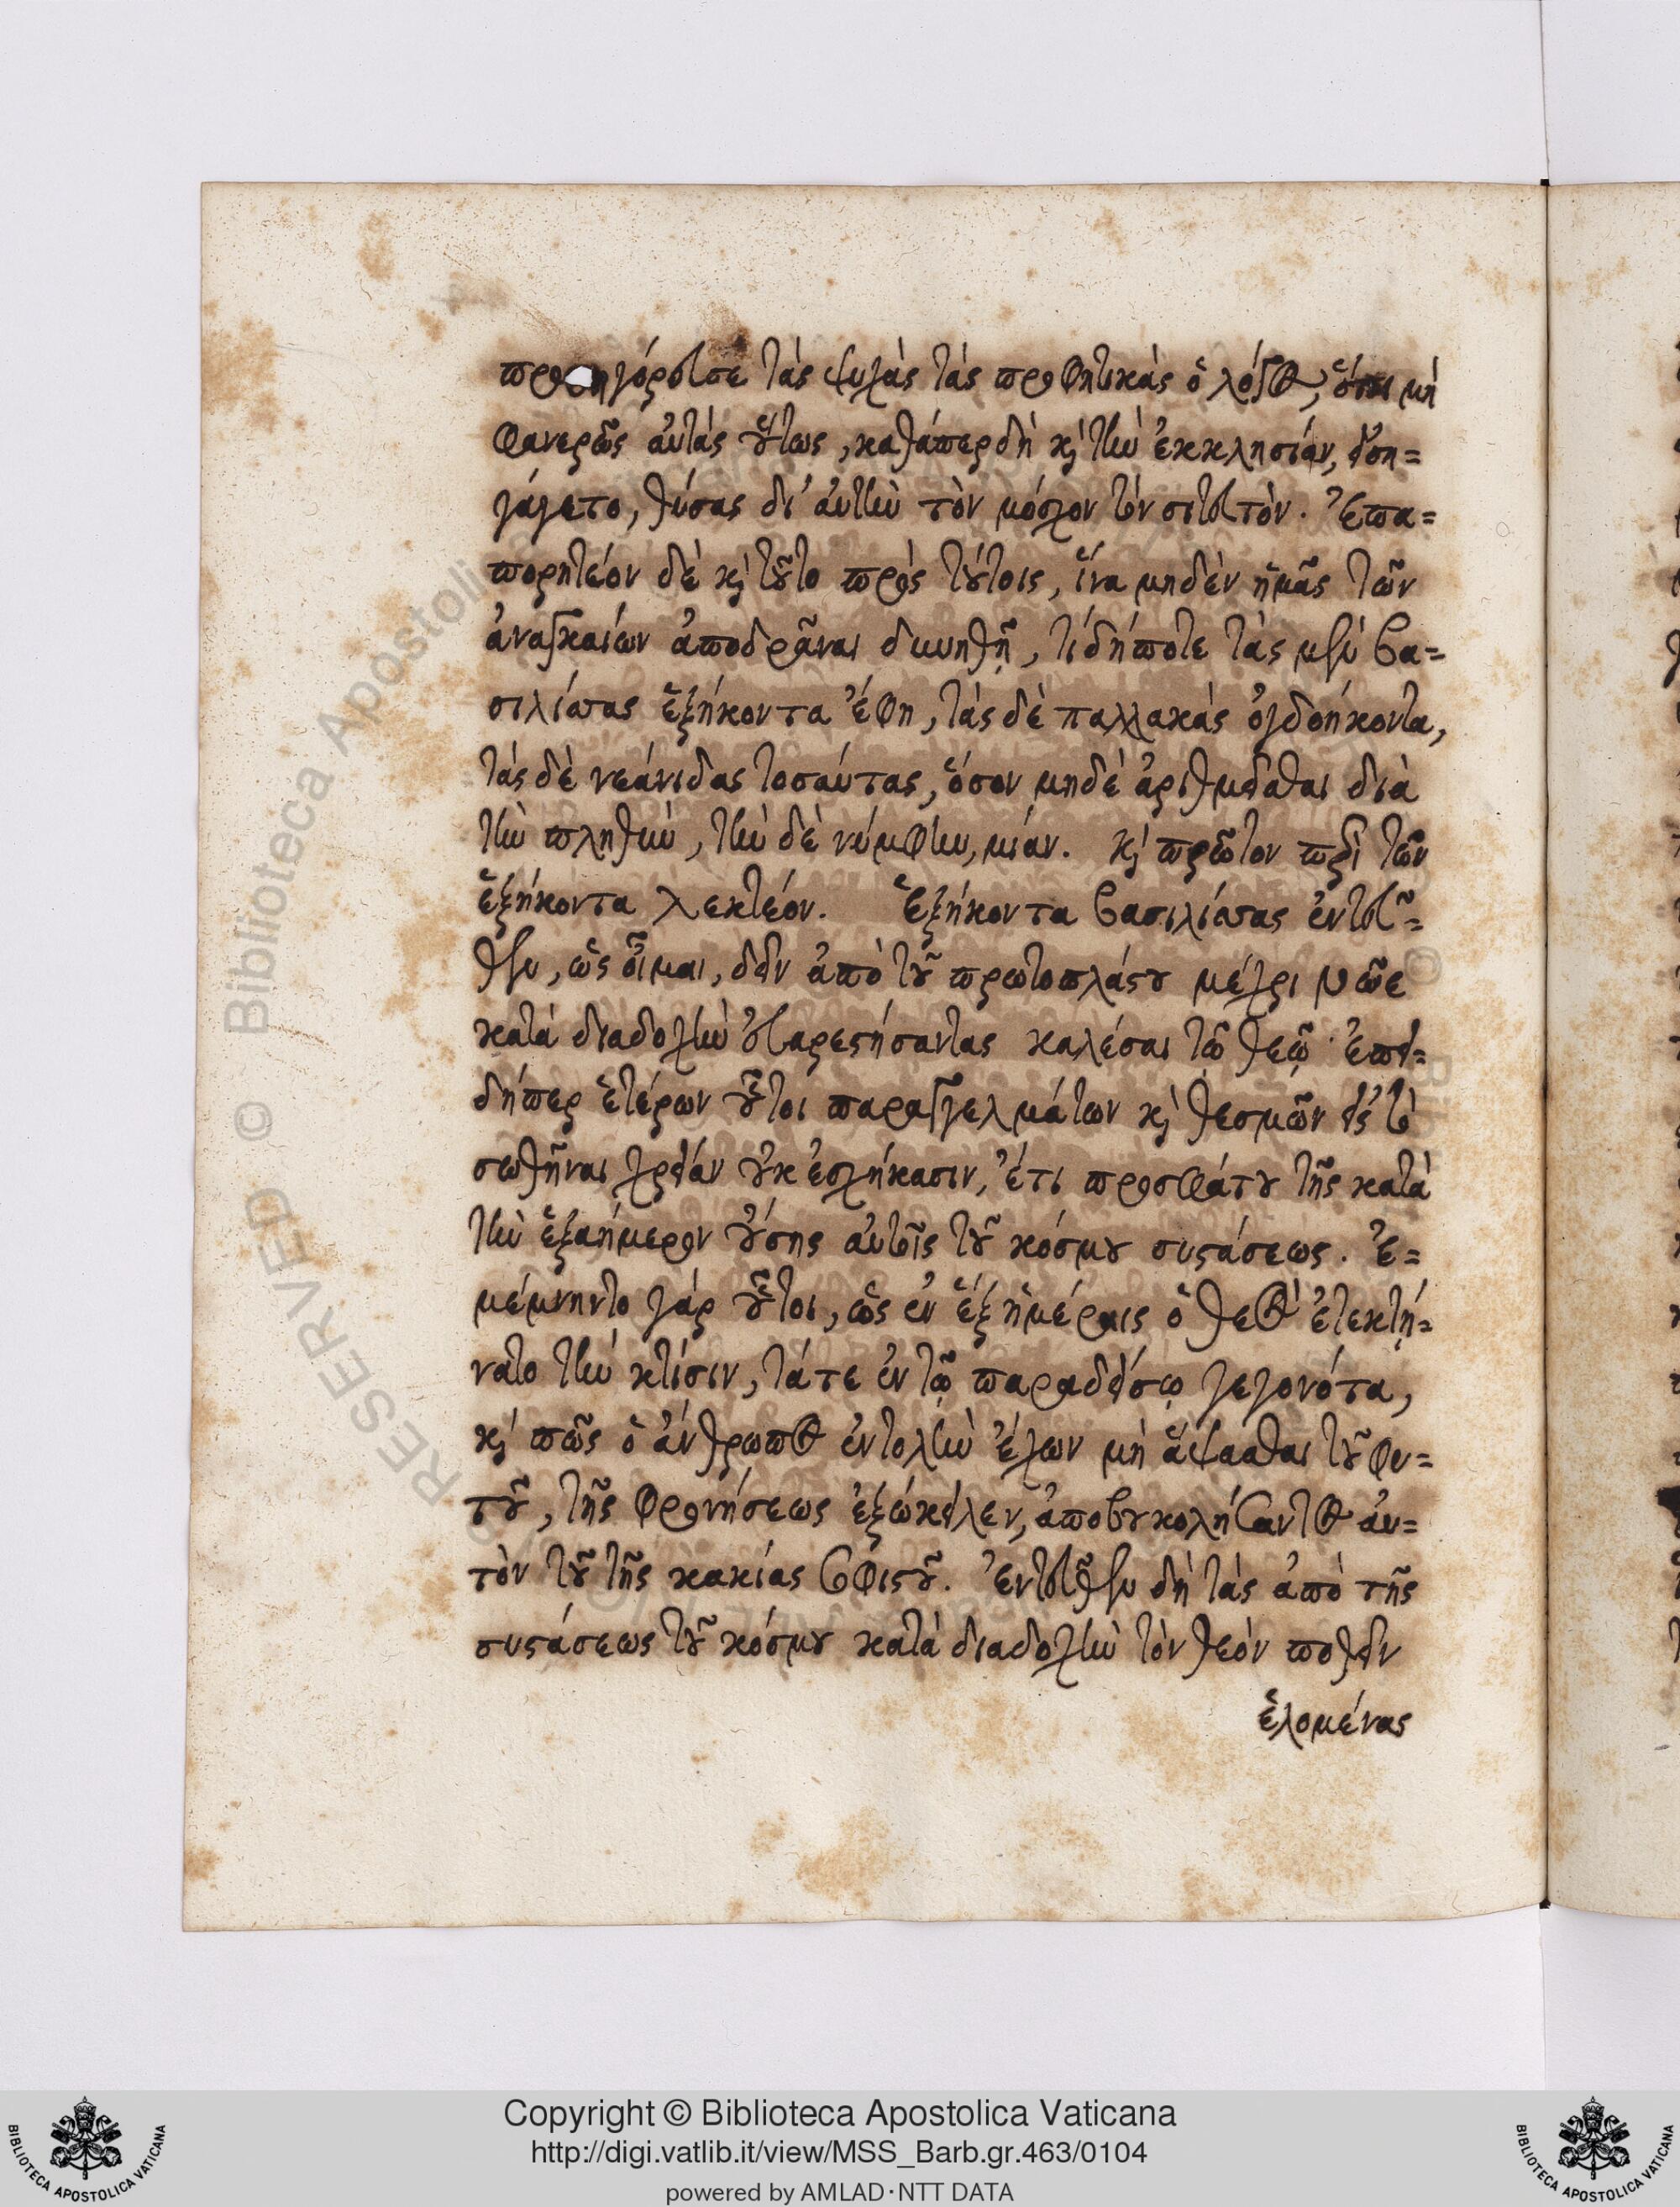 προσηγόρευσε τὰς ψυχὰς τὰς προφητικὰς ὁ λόγος, ὅτι μὴ
φανερῶς αὐτὰς οὕτως, καθάπερ δὴ καὶ τὴν ἐκκλησίαν, εἰση-
γάγετο, θύσας δι' αὐτὴν τὸν μόσχον τὸν σιτευτόν. Ἐπα-
πορητέον δὲ καὶ τοῦτο πρὸς τούτοις, ἵνα μηδὲν ἡμᾶς τῶν
ἀναγκαίων ἀποδρᾶναι δυνηθῇ, τί δήποτε τὰς μὲν βα-
σιλίσσας ἑξήκοντα ἔφη, τὰς δὲ παλλακὰς ὀγδοήκοντα,
τὰς δὲ νεάνιδας τοσαύτας, ὅσον μηδὲ ἀριθμεῖσθαι διὰ
τὴν πληθὺν, τὴν δὲ νύμφην, μίαν. καὶ πρῶτον περὶ τῶν
ἑξήκοντα λεκτέον. Ἑξήκοντα βασιλίσσας ἐντεῦ-
θεν, ὡς οἶμαι, δεῖν ἀπὸ τοῦ πρωτοπλάστου μέχρι Νῶε
κατὰ διαδοχὴν εὐαρεστήσαντας καλέσαι τῷ θεῷ· ἐπει-
δήπερ ἑτέρων οὗτοι παραγγελμάτων καὶ θεσμῶν εἰς τὸ
σωθῆναι χρείαν οὐκ ἐσχήκασιν, ἔτι προσφάτου τῆς κατὰ
τὴν ἑξαήμερον οὔσης αὐτοῖς τοῦ κόσμου συστάσεως. Ἐ-
μέμνηντο γὰρ οὗτοι, ὡς ἐν ἓξ ἡμέραις ὁ θεὸς ἐτεκτή-
νατο τὴν κτίσιν, τά τε ἐν τῷ παραδείσῳ γεγονότα,
καὶ πῶς ὁ ἄνθρωπος ἐντολὴν ἔχων μὴ ἅψασθαι τοῦ φυ-
τοῦ, τῆς φρονήσεως ἐξώκειλεν, ἀποβουκολήσαντος αὐ-
τὸν τοῦ τῆς κακίας σοφιστοῦ. Ἐντεῦθεν δὴ τὰς ἀπὸ τῆς
συστάσεως τοῦ κόσμου κατὰ διαδοχὴν τὸν θεὸν ποθεῖν
ἑλομένας
Copyright © Biblioteca Apostolica Vaticana
http://digi.vatlib.it/view/MSS_Barb.gr.463/0104
powered by AMLAD·NTT DATA